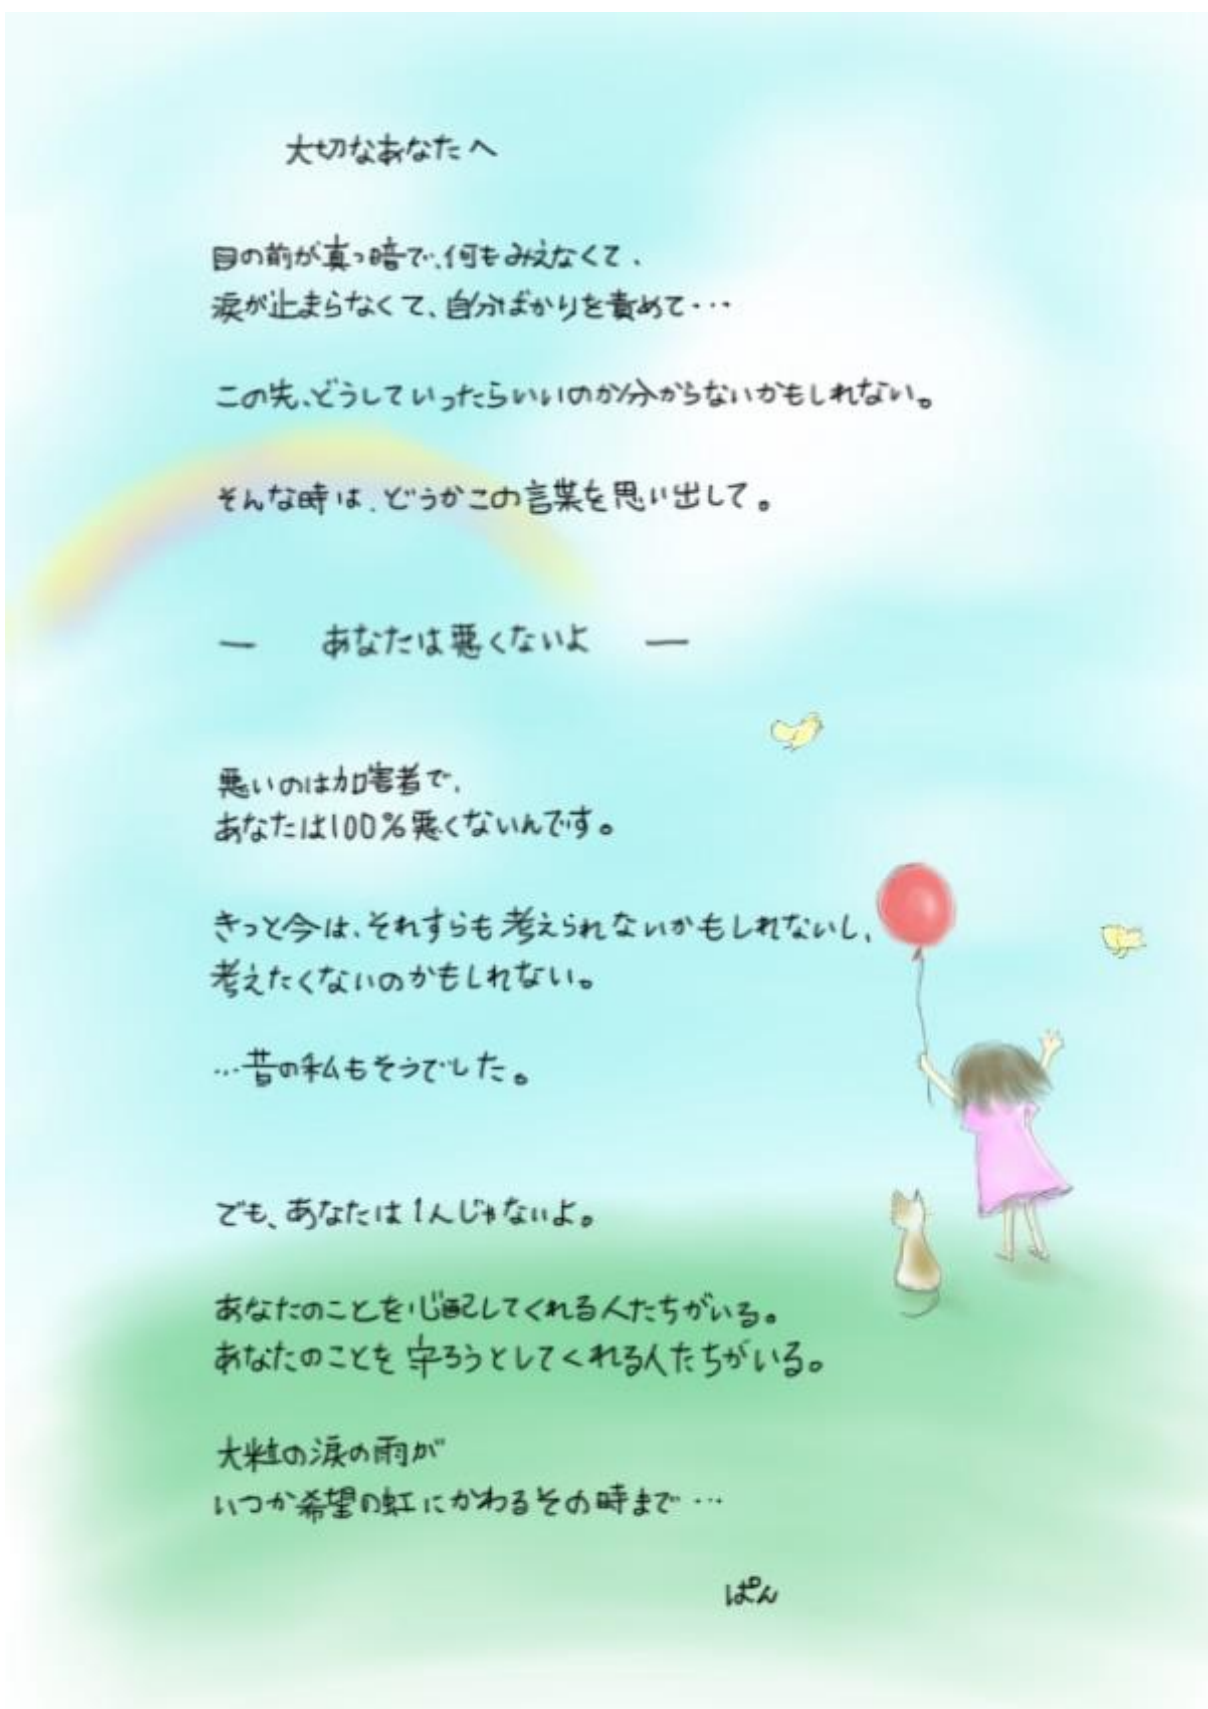 大切なあなたへ
目の前が真っ暗で、何もみえなくて、
涙が止まらなくて、自分ばかりを責めて・・・
この先、どうしていったらいいのか分からないかもしれない。
そんな時は、どうかこの言葉を思い出して。
― あなたは悪くないよ ―
悪いのは加害者で、
あなたは100%悪くないんです。
きっと今は、それすらも考えられないかもしれないし、
考えたくないのかもしれない。
…昔の私もそうでした。
でも、あなたは1人じゃないよ。
あなたのことを心配してくれる人たちがいる。
あなたのことを守ろうとしてくれる人たちがいる。
大粒の涙の雨が
いつか希望の虹にかわるその時まで…
ぱん